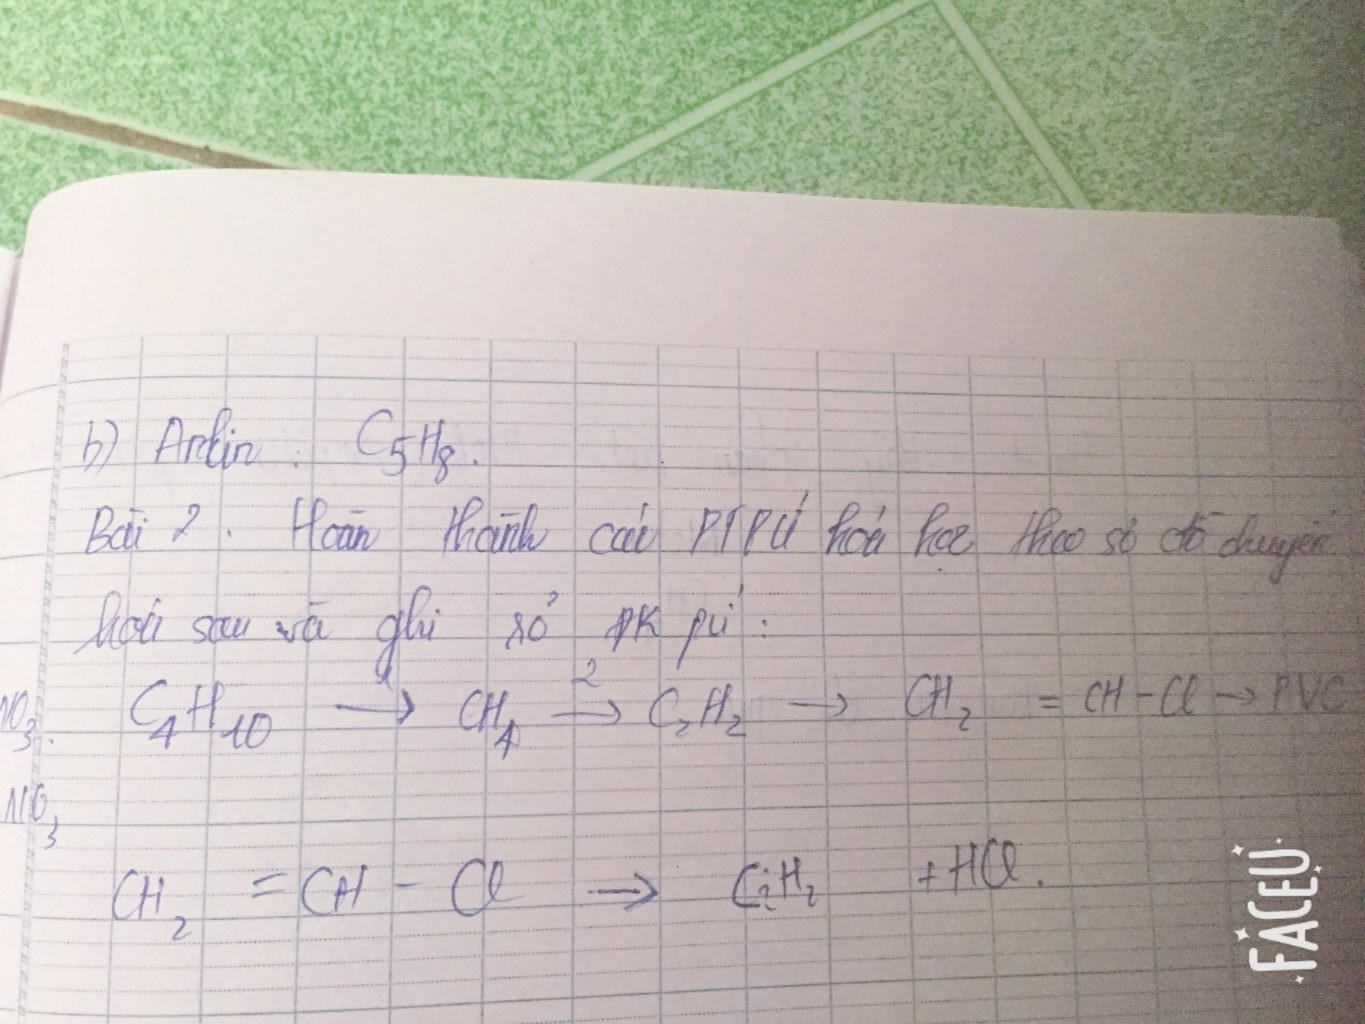 b) Ankin : C5H8.
Bài 2 : Hoàn thành các PTPƯ hoá học theo sơ đồ chuyển
hoá sau và ghi rõ ĐK pứ :
NO3. C4H10 1→ CH4 2→ C2H2 → CH2 = CH - Cl → PVC
NO3
CH2 = CH - Cl → C2H2 + HCl.
FACEU